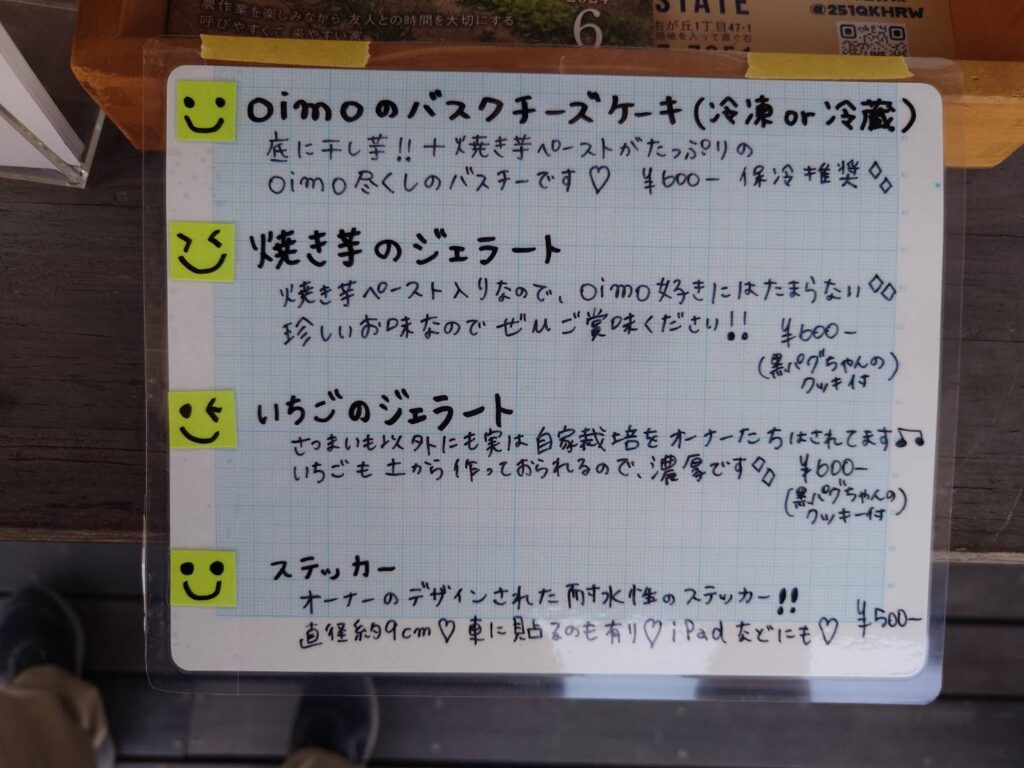 農作業を楽しみながら 友人との時間を大切にする
呼びやすくて 来やすい家
6
STATE
@251QKHRW
LINE
oimoのバスクチーズケーキ(冷凍or冷蔵)
底に干し芋!!+焼き芋ペーストがたっぷりの
oimo尽くしのバスチーです♡ ¥600- 保冷推奨
焼き芋のジェラート
焼き芋ペースト入りなので、oimo好きにはたまらない
珍しいお味なので ぜひご賞味ください!! ¥600-
(黒パグちゃんの
クッキ付)
いちごのジェラート
さつまいも以外にも実は自家栽培をオーナーたちはされてます♫
いちごも土から作っておられるので、濃厚です ¥600-
(黒パグちゃんの
クッキー付)
ステッカー
オーナーのデザインされた耐水性のステッカー!!
直径約9cm♡ 車に貼るのも有り♡ iPadなどにも♡ ¥500-